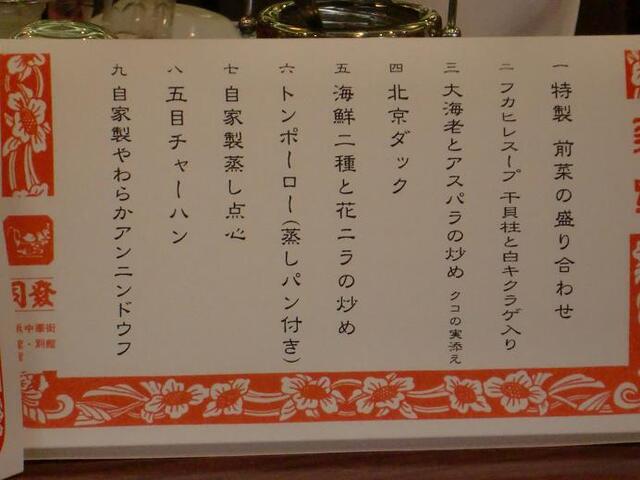 一 特製 前菜の盛り合わせ
二 フカヒレスープ 干貝柱と白キクラゲ入り
三 大海老とアスパラの炒め クコの実添え
四 北京ダック
五 海鮮二種と花ニラの炒め
六 トンポーロー(蒸しパン付き)
七 自家製蒸し点心
八 五目チャーハン
九 自家製やわらかアンニンドウフ
同發
中華街
別館